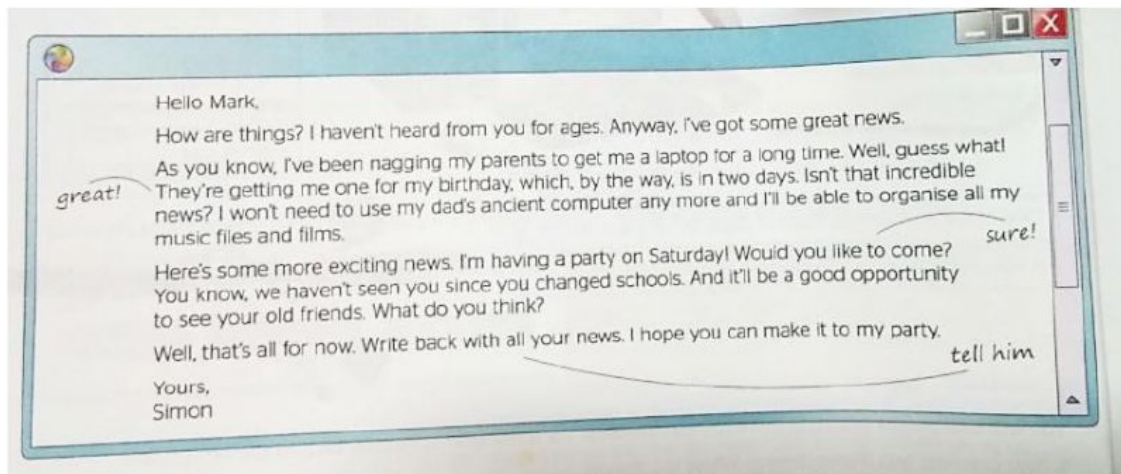 Hello Mark,
How are things? I haven't heard from you for ages. Anyway, I've got some great news.
As you know, I've been nagging my parents to get me a laptop for a long time. Well, guess what!
great! They're getting me one for my birthday, which, by the way, is in two days. Isn't that incredible
news? I won't need to use my dad's ancient computer any more and I'll be able to organise all my
music files and films.
sure!
Here's some more exciting news. I'm having a party on Saturday! Would you like to come?
You know, we haven't seen you since you changed schools. And it'll be a good opportunity
to see your old friends. What do you think?
Well, that's all for now. Write back with all your news. I hope you can make it to my party.
tell him
Yours,
Simon